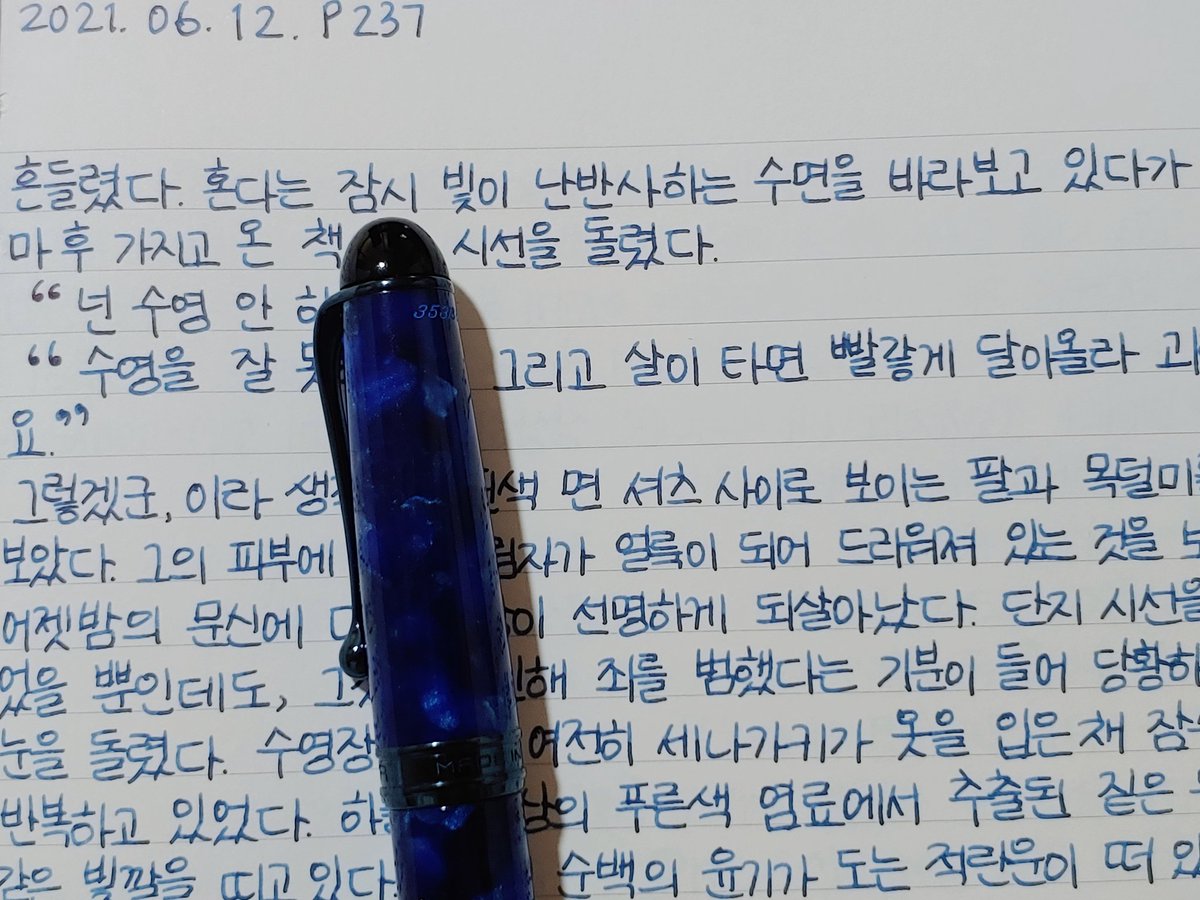 2021. 06. 12. P237
흔들렸다. 혼다는 잠시 빛이 난반사하는 수면을 바라보고 있다가
마 후 가지고 온 책 시선을 돌렸다.
“넌 수영 안
“수영을 잘 그리고 살이 타면 빨갛게 달아올라
요.”
그렇겠군, 이라 면 셔츠 사이로 보이는 팔과
보았다. 그의 피부에 얼룩이 되어 드리워져 있는 것을
어젯밤의 문신에 선명하게 되살아났다. 단지
었을 뿐인데도, 죄를 범했다는 기분이 들어
눈을 돌렸다. 여전히 세나가키가 옷을 입은 채
반복하고 있었다. 푸른색 염료에서 추출된 짙은
같은 빛깔을 띠고 있다. 수백의 윤기가 도는 적란운이 떠